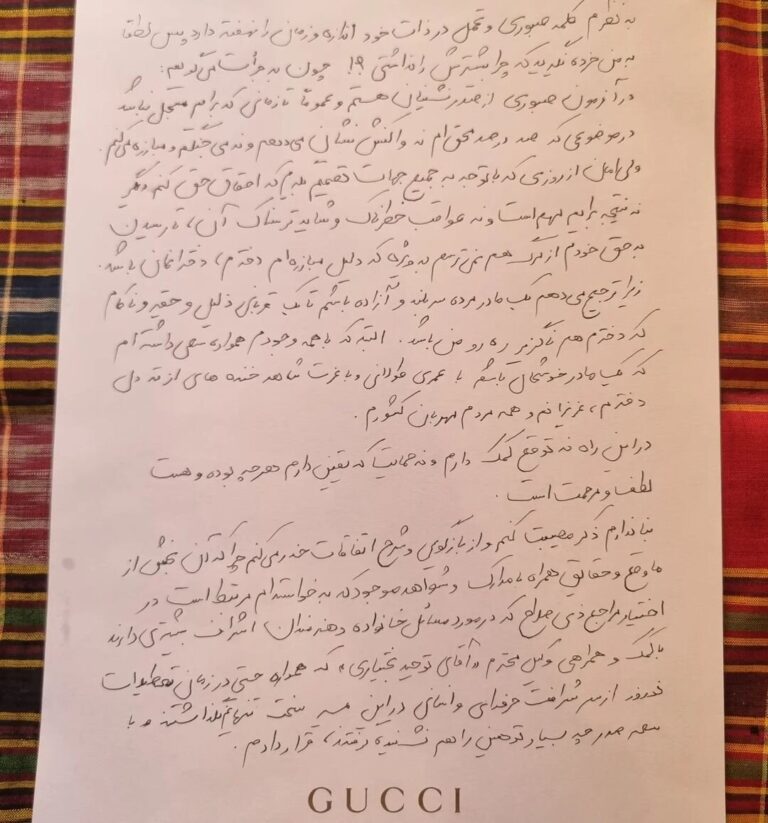 به نظرم کلمه صبوری و تحمل در ذات خود اندازه و زمان را نهفته دارد پس لطفا
به من خرده نگیرید که چرا بیشترش را نداشتی ؟! چون به جرأت می‌گویم:
در آزمون صبوری از صدرنشینان هستم و عموماً تا زمانی که برایم متحمل باشد
در موضوعی که صد درصد محق‌ام نه واکنش نشان می‌دهم و نه می‌جنگم و مبارزه می‌کنم.
ولی امان از روزی که با توجه به جمیع جهات تصمیم بگیرم که احقاق حق کنم دیگر
نه نتیجه برایم مهم است و نه عواقب خطرناک و شاید ترسناک آن، تا رسیدن
به حق خودم از مرگ هم نمی‌ترسم به ویژه که دلیل مبارزه‌ام دخترم، دخترانمان باشد.
زیرا ترجیح می‌دهم یک مادر مرده سربلند و آزاده باشم تا یک قربانی ذلیل و حقیر و ناکام
که دخترم هم ناگزیر ره رو من باشد. البته که با همه وجودم همواره سعی داشته‌ام
که یک مادر خوشحال باشم با عمری طولانی و با عزت شاهد خنده های از ته دل
دخترم، عزیزانم و همه مردم مهربان کشورم.
در این راه نه توقع کمک دارم و نه حمایت که یقین دارم هر چه بوده و هست
لطف و مرحمت است.
بنا ندارم ذکر مصیبت کنم و از بازگویی و شرح اتفاقات حذر می‌کنم چرا که آن بخش از
ماوقع و حقایق همراه با مدارک و شواهد موجود که به خواسته‌ام مرتبط است در
اختیار مراجع ذی صلاح که در مورد مسائل خانواده و هنرمندان، اشراف بیشتری دارند
با کمک و همراهی وکیل محترم «آقای توحید بختیاری» که همواره حتی در زمان تعطیلات
نوروز از سر شرافت حرفه‌ای و انسانی در این مسیر سخت تنهایم نگذاشتند و با
سعه صدر چه بسیار توهین را هم نشنیده گرفتند، قرار دادم.
GUCCI